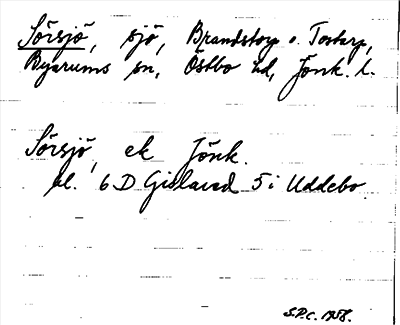 Sörsjö, sjö, Brandstorp o. Tostarp,
Byarums sn, Östbo hd, Jönk. l.
Sörsjö, ek Jönk.
bl. 6 D Gislaved 5 i Uddebo.
S.P.c. 1958.